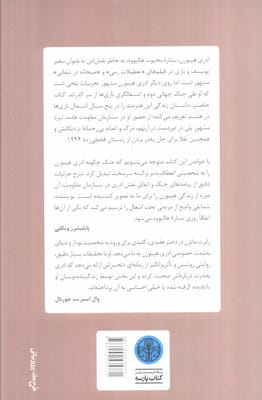 ادری هپبورن، ستاره محبوب هالیوود، به خاطر نقش‌اش به عنوان سفیر
یونیسف و بازی در فیلم‌های «تعطیلات رمی» و «صبحانه در تیفانی»
مشهور است. اما روی دیگر ادری هپبورن مشهور تجربیات تلخی است
که او طی جنگ جهانی دوم و اشغالگری نازی‌ها از سر گذراند. کتاب
حاضر، داستان زندگی این هنرمند را در پنج سال اشغال نازی‌ها
در هلند، تعریف می‌کند؛ از حضور او در سازمان مقاومت هلند، نبرد
مشهور پلی در دوردست در آرنهم، مرگ و اعدام بی‌رحمانهٔ نزدیکانش و
همچنین تقلا برای جان به‌در بردن از زمستان قحطی‌زدهٔ ۱۹۴۴.
با خواندن این کتاب متوجه می‌شویم که جنگ چگونه ادری هپبورن
را به شخصیتی انعطاف‌پذیر و البته سرسخت تبدیل کرد. شرح جزئیات
دقیق از پیامدهای جنگ و ایفای نقش ادری در سازمان مقاومت، آن
دوره از زندگی هپبورن را برای ما به تصویر کشیده است. نویسنده،
شمایلی واضح از مردمی تحت اشغال را ترسیم می‌کند که یکی از آن‌ها
اتفاقاً روزی ستارهٔ هالیوود می‌شود.
پابلیشرز ویکلی
رابرت ماتزن در دختر هلندی، کلیدی برای ورود به شخصیت تودار و دنیای
به‌شدت خصوصی ادری هپبورن به ما می‌دهد. او با تحقیقات بسیار دقیق،
روایتی روشن و تأثیربرانگیز از زمانه‌ای دلخراش ارائه می‌دهد که ادری
به‌ندرت درباره‌اش صحبت کرده و این بخش توسط زندگینامه‌نویسان او
یا نادیده گرفته شده یا خیلی احساسی به آن پرداخته‌اند.
وال استریت جورنال
کتاب پارسه